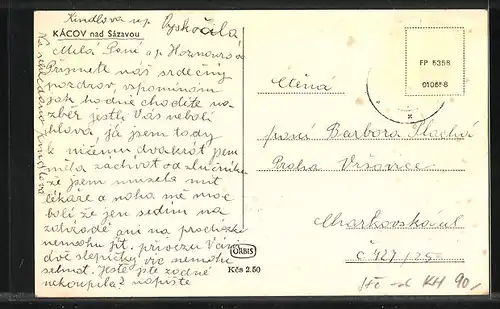 Kindlova up. Pyskočela
KÁCOV nad Sázavou
Milá Paní a p. Hoznourová
Přijmete náš srdečný
pozdrav, vzpomínám
jak hodně chodíte na
zběr jestly Vás nebolí
hlova, já jsem tady
k ničemu dvakrát jsem
měla záchvat od zlučníku
že jsem musela mít
lékaře a noha mě moc
bolí že jen sedím na
zahradě ani na procházku
nemohu jít. přivezu Vám
dvě slepičky víc nemohu
sehnat. Jestě jste žádné
nekoupila? napište
ORBIS
Kčs 2.50
FP 5358
010658
Ctěná
paní Barbora Machá
Praha Vršovice
Charkovská ul
č 427/25
KH 90,-